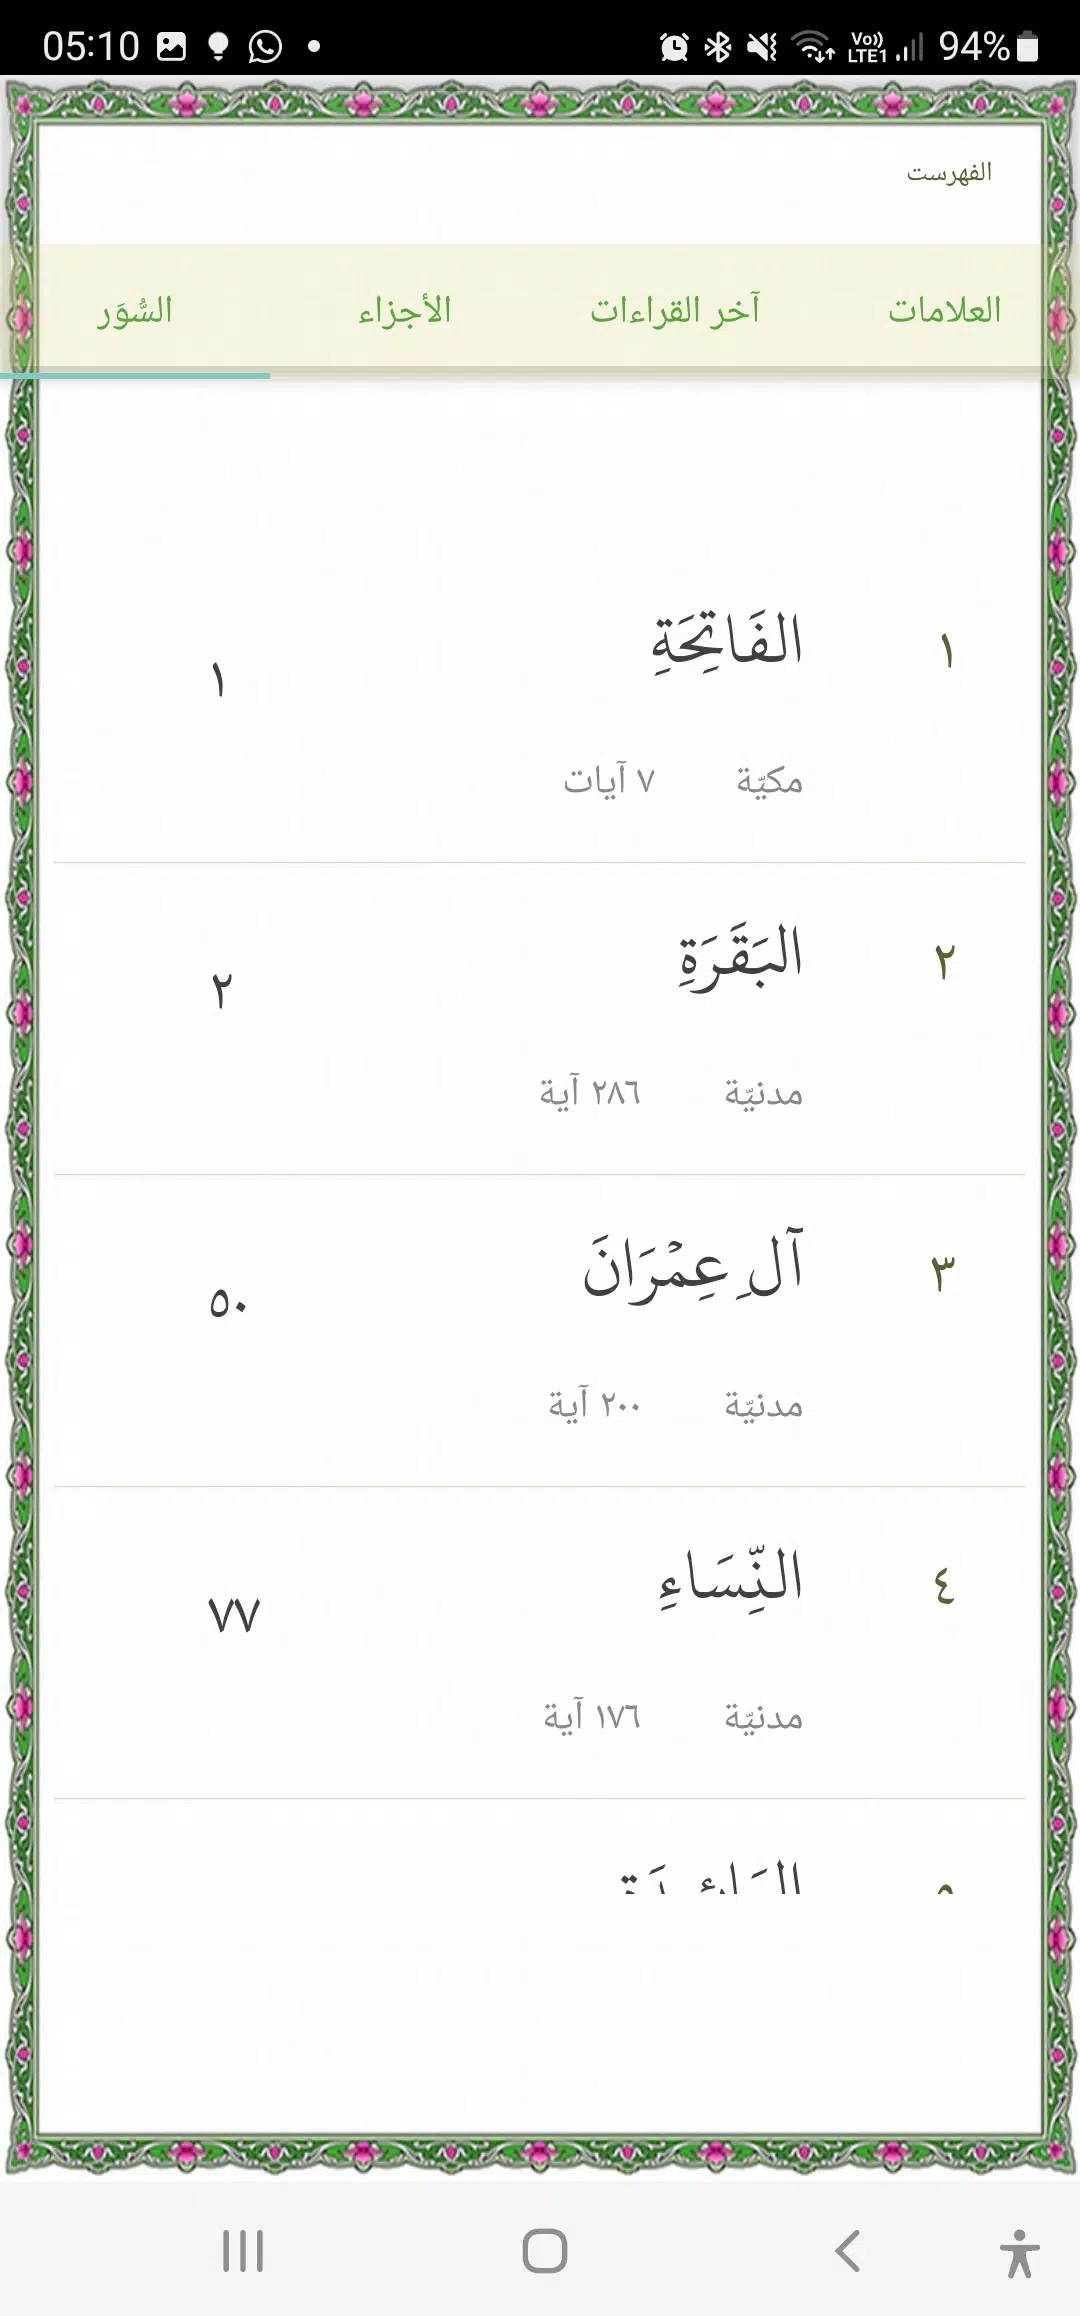 05:10 Vo)) LTE1 94%
الفهرست
العلامات آخر القراءات الأجزاء السُّوَر
١ الفَاتِحَةِ ١
مكيّة ٧ آيات
٢ البَقَرَةِ ٢
مدنيّة ٢٨٦ آية
٣ آلِ عِمْرَانَ ٥٠
مدنيّة ٢٠٠ آية
٤ النِّسَاءِ ٧٧
مدنيّة ١٧٦ آية